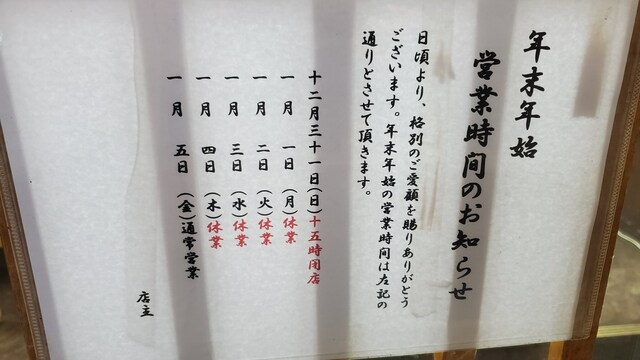 年末年始
営業時間のお知らせ
日頃より、格別のご愛顧を賜りありがとう
ございます。年末年始の営業時間は左記の
通りとさせて頂きます。
十二月三十一日(日)十五時閉店
一月 一日(月)休業
一月 二日(火)休業
一月 三日(水)休業
一月 四日(木)休業
一月 五日(金)通常営業
店主